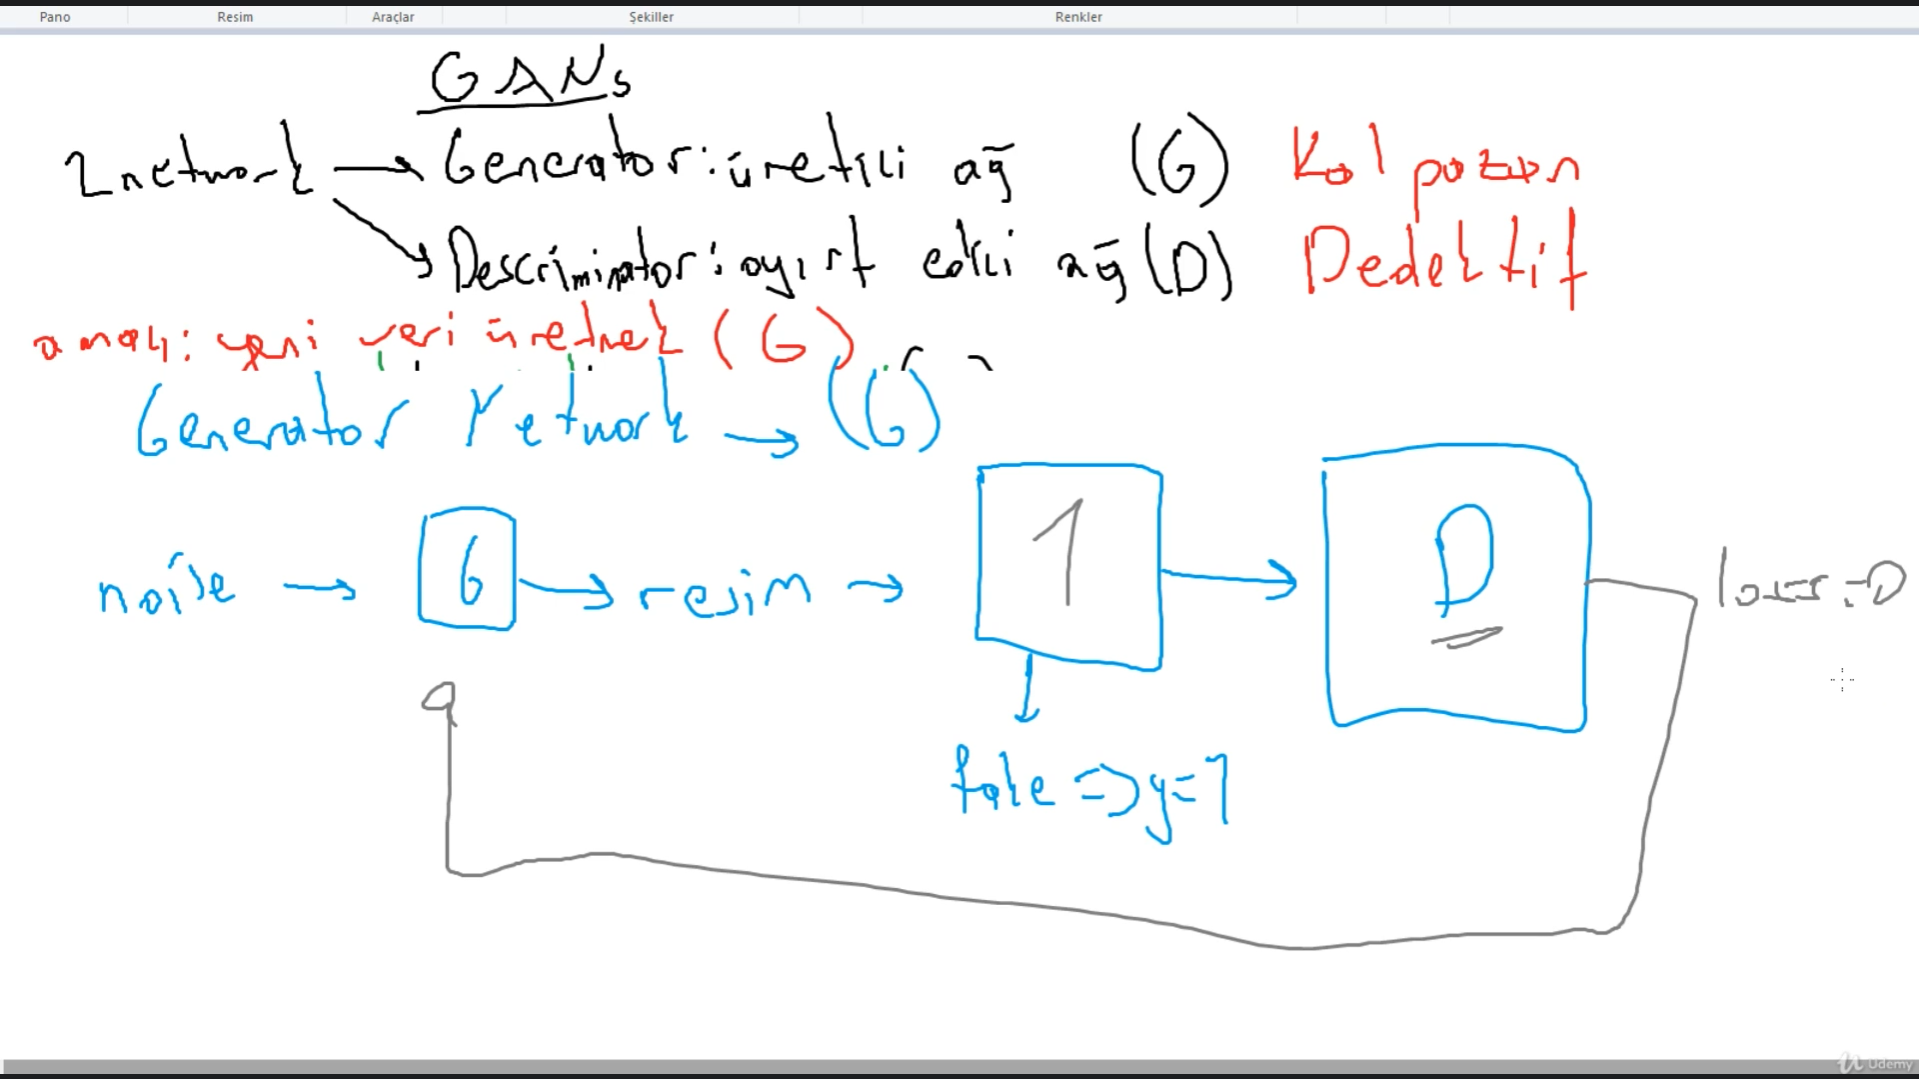 Pano Resim Araçlar Şekiller Renkler
GANs
2 network → Generator: üretici ağ (G) Kalpazan
Descriminator: ayırt edici ağ (D) Dedektif
amaç: yeni veri üretmek (G)
Generator Network → (G)
noise → G → resim → 1 → D loss:D
fake => y=1
Udemy